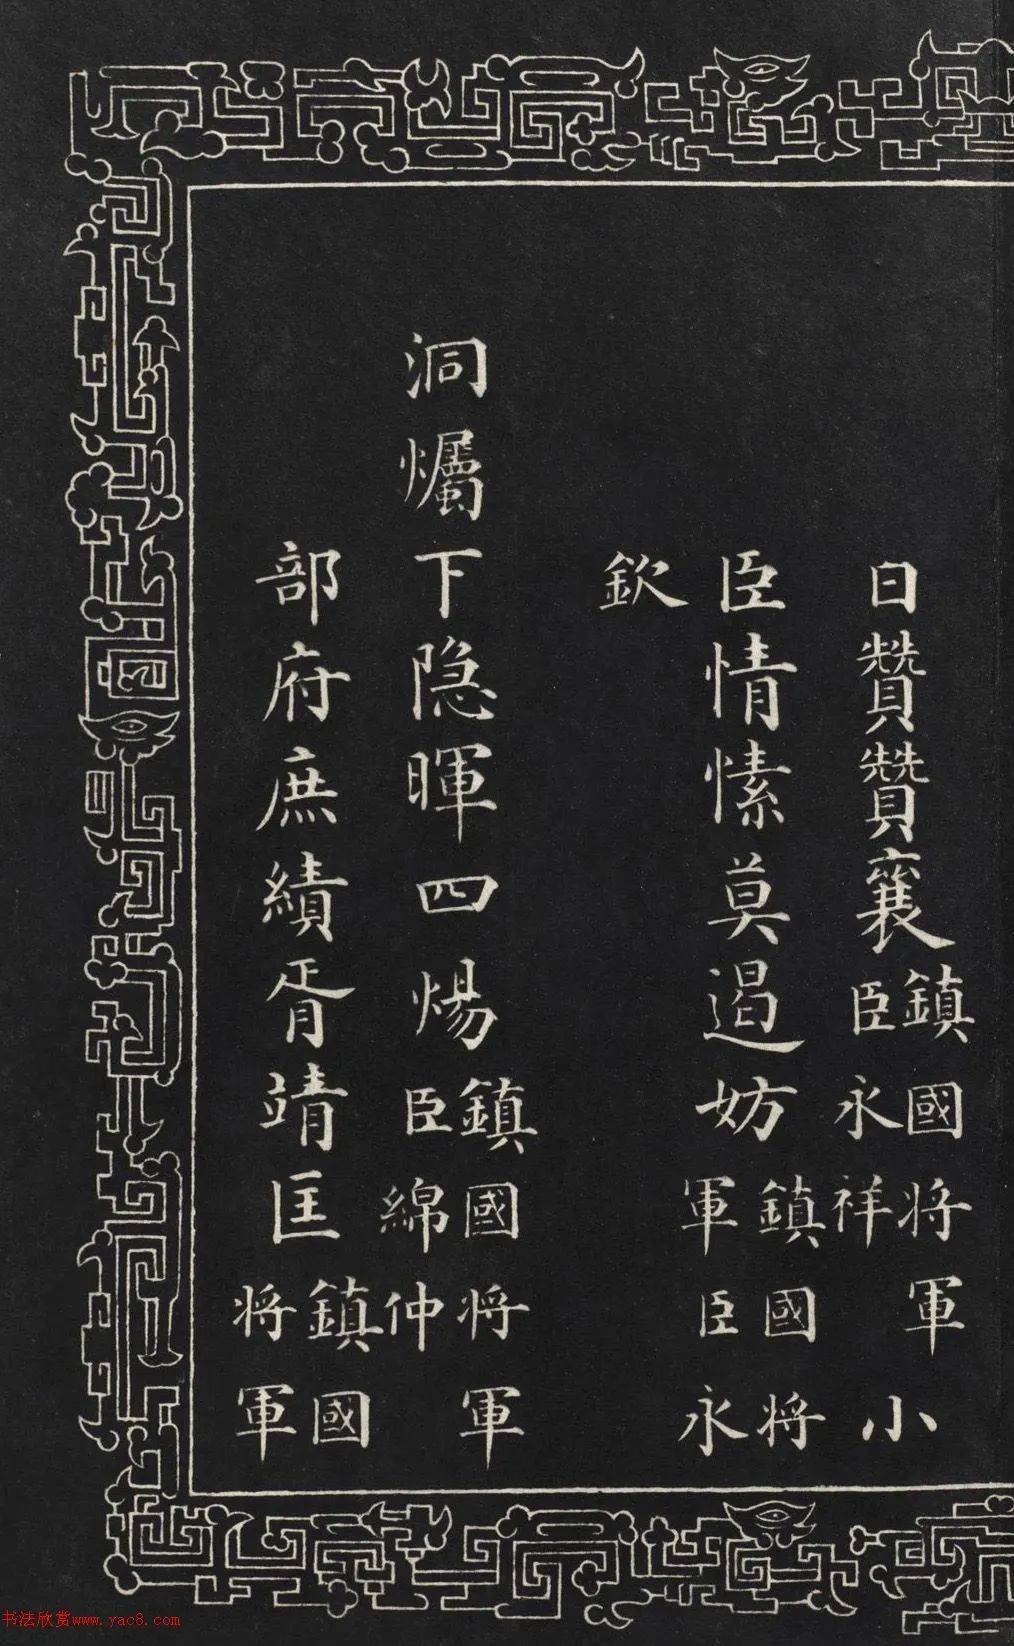 曰贊贊襄鎮國将軍臣永祥小
臣情愫莫遏妨鎮國将軍臣永
欽
洞爥下隐暉四煬鎮國将軍臣綿仲
部府庶績胥靖匡鎮國将軍
书法欣赏www.yac8.com